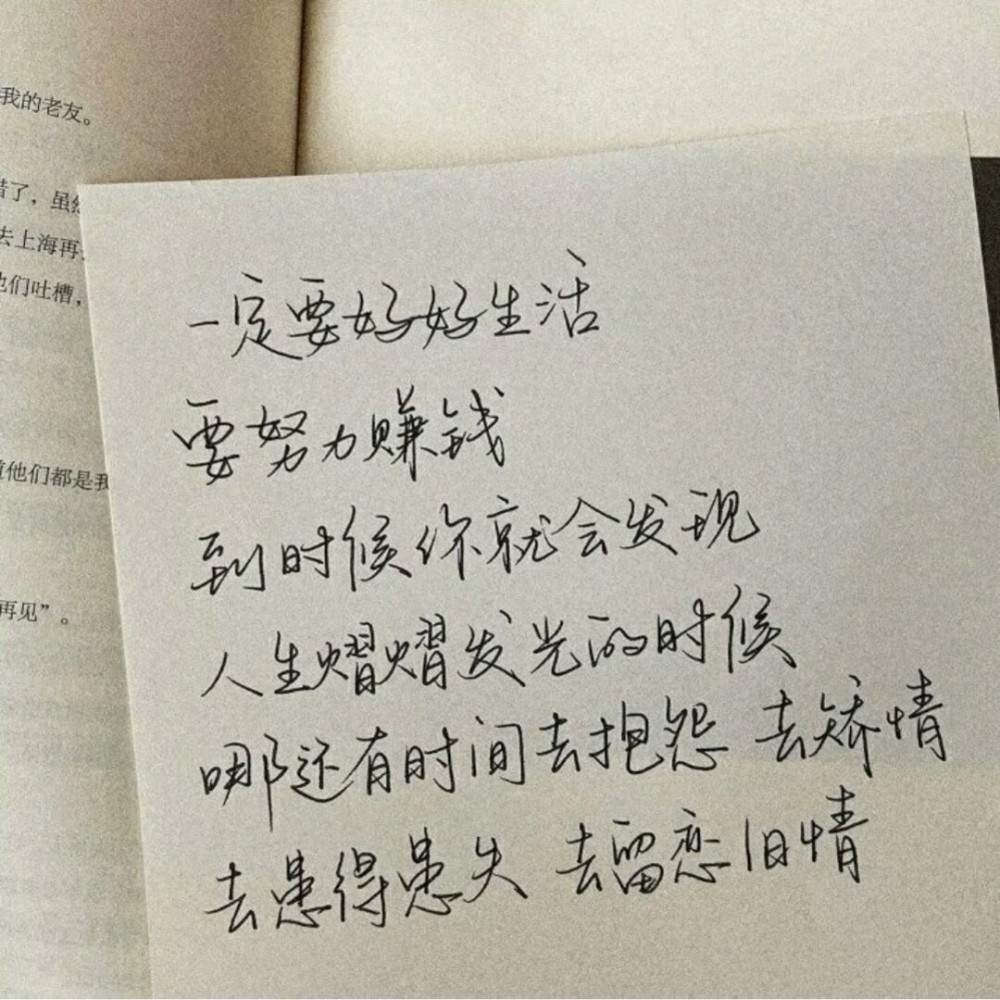 我的老友。
错了，虽然
去上海再
他们吐槽，
他们都是我
再见”。
一定要好好生活
要努力赚钱
到时候你就会发现
人生熠熠发光的时候
哪还有时间去抱怨 去矫情
去患得患失 去留恋旧情